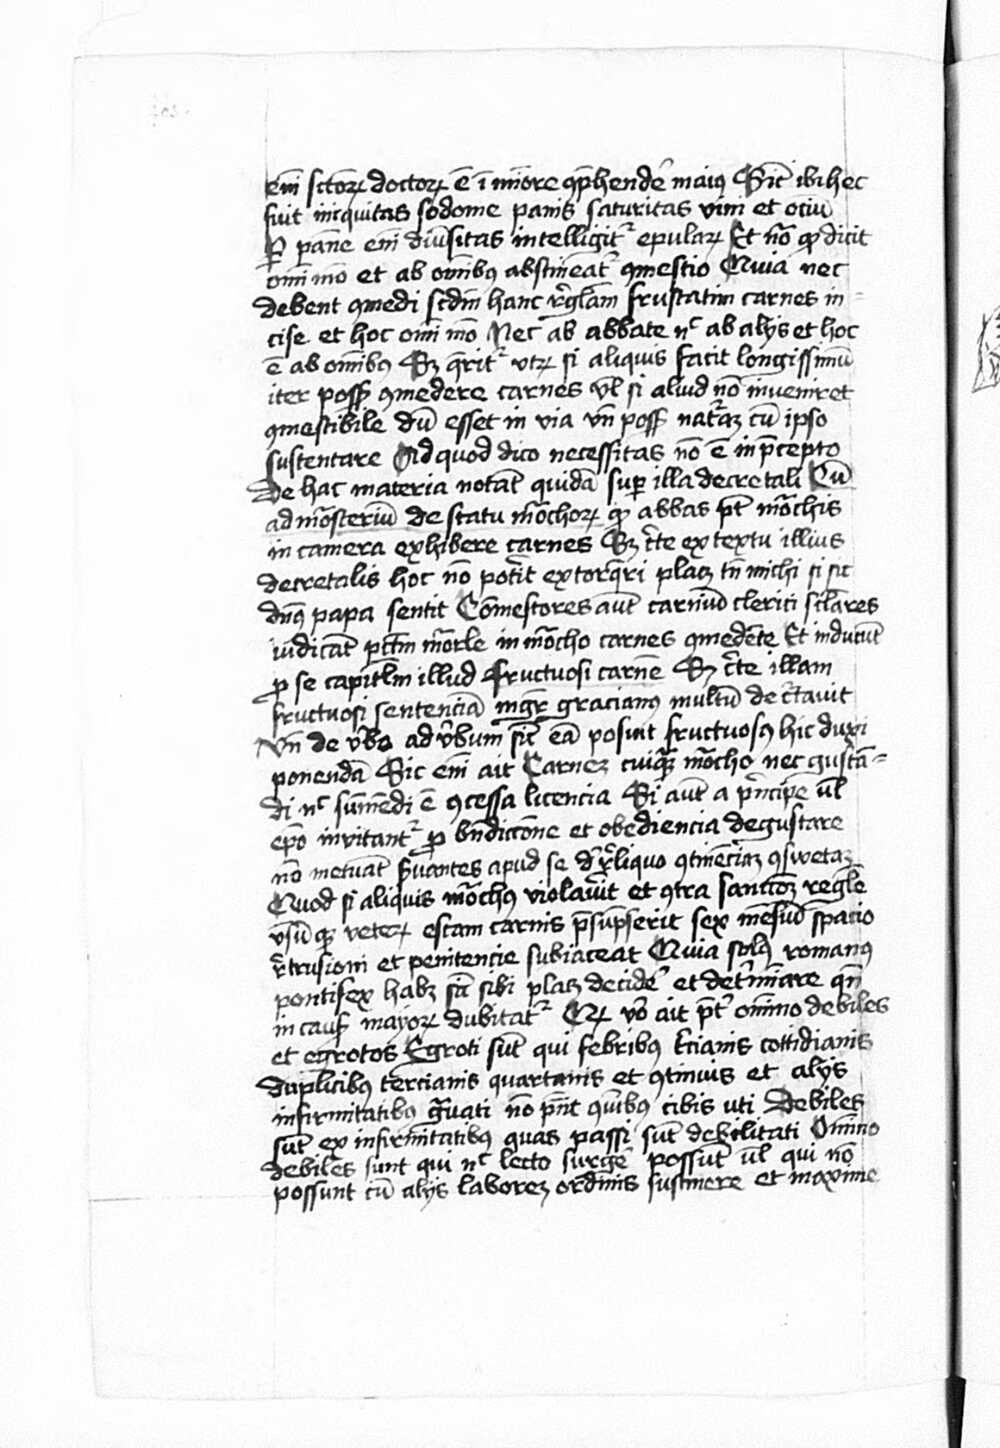 em̄ sctorꝝ doctorꝝ ē ī mīore ꝯp̄hendẽ maiꝰ Sic̄ ibi hec
fuit iniquitas sodome panis saturitas vini et ociū
Per panē em̄ diūsitas intelligit᷑ epularꝝ Et nō ꝙ dicit
om̄i mō et ab om̄ibꝰ abstineat᷑ ꝯmestio Quia nec
debent ꝯmedi scdm̄ hanc rḡlam frustatim carnes in⸗
cise et hoc om̄i mō Nec ab abbate nc̄ ab alijs et hoc
ē ab om̄ibꝰ Sꝫ q̄rit᷑ vtꝝ si aliquis facit longissimū
iter poss̄ ꝯmedere carnes vl̄ si aliud nō inveniret
ꝯmestibile dū esset in via vn̄ poss̄ nat᷑aꝫ cū ipso
sustentare Ad quod dico necessitas nō ē in p̄cepto
De hac materia notāt quidā suꝑ illa decretali Cū
ad mōsteriū de statu mōchorꝝ ꝙ abbas pt̄ mōchis
in camera exhibere carnes Sꝫ c̄te ex textu illius
decretalis hoc nō pot̄it extorq̄ri placꝫ tn̄ michi si sic
dn̄ꝰ papa sentit Comestores aut̄ carniū clerici sclāres
iudicāt pctm̄ mōrle in mōcho carnes ꝯmedēte Et inducūt
ꝓ se capitlm̄ illud Fructuosi carnē Sꝫ c̄te illam
fructuosi sentenciā mgr̄ gracianꝰ multū detc̄tavit
Vn̄ de v̄bo ad v̄bum sic̄ eā posuit fructuosꝰ hic duxi
ponendā Sic em̄ ait Carneꝫ cuiqᷓ mōcho nec gustā⸗
di nc̄ sumēdi ē ꝯcessa licencia Si aut̄ a p̄ncipe vl̄
ep̄o invitant᷑ ꝓ bn̄diccōne et obediencia degustare
nō metuāt s̄uantes apud se d̄ rl̄iquo ꝯtinēciaꝫ ꝯswetaꝫ
Quod si aliquis mōchꝰ violav̄it et ꝯtra sanccōꝫ regl̄e
vsūqꝫ veterꝝ escam carnis p̄sūpserit sex mēsiū spacio
rt̄rusioni et penitencie subiaceat Quia solꝰ romanꝰ
pontifex habꝫ sic̄ sibi placꝫ decidẽ et det᷑mīare qn̄
in caus̄ mayorꝝ dubitat᷑ Qꝝ vō ait p̄t om̄ino debiles
et egrotos Egroti sūt qui febribꝰ t̄cianis cottidianis
duplicibꝰ tercianis quartanis et ꝯtinuis et alijs
infirmitatibꝰ gᷓuati nō pn̄t qᷓibꝰ cibis uti Debiles
sūt ex infirmitatibꝰ quas passi sūt debilitati Om̄ino
debiles sunt qui nc̄ lecto surgẽ possūt vl̄ qui nō
possunt cū alijs laboreꝫ ordinis sustinere et maxime